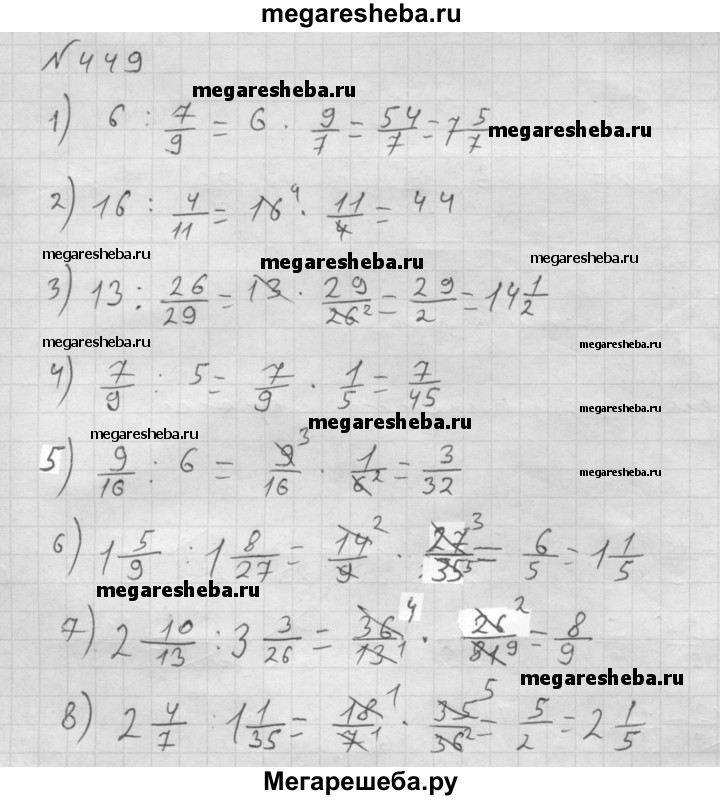 megaresheba.ru
№449
megaresheba.ru
1) 6 : 7/9 = 6 · 9/7 = 54/7 = 7 5/7
megaresheba.ru
2) 16 : 4/11 = 16 4 · 11/4 = 44
megaresheba.ru megaresheba.ru megaresheba.ru
3) 13 : 26/29 = 13 · 29/26 2 = 29/2 = 14 1/2
megaresheba.ru megaresheba.ru
4) 7/9 : 5 = 7/9 · 1/5 = 7/45
megaresheba.ru
megaresheba.ru megaresheba.ru
5) 9/16 : 6 = 9 3/16 · 1/6 2 = 3/32
megaresheba.ru
6) 1 5/9 : 1 8/27 = 14 2/9 · 27 3/35 5 = 6/5 = 1 1/5
megaresheba.ru
7) 2 10/13 : 3 3/26 = 36 4/13 1 · 26 2/81 9 = 8/9
megaresheba.ru
8) 2 4/7 : 1 1/35 = 18 1/7 1 · 35 5/36 2 = 5/2 = 2 1/5
Мегарешеба.ру